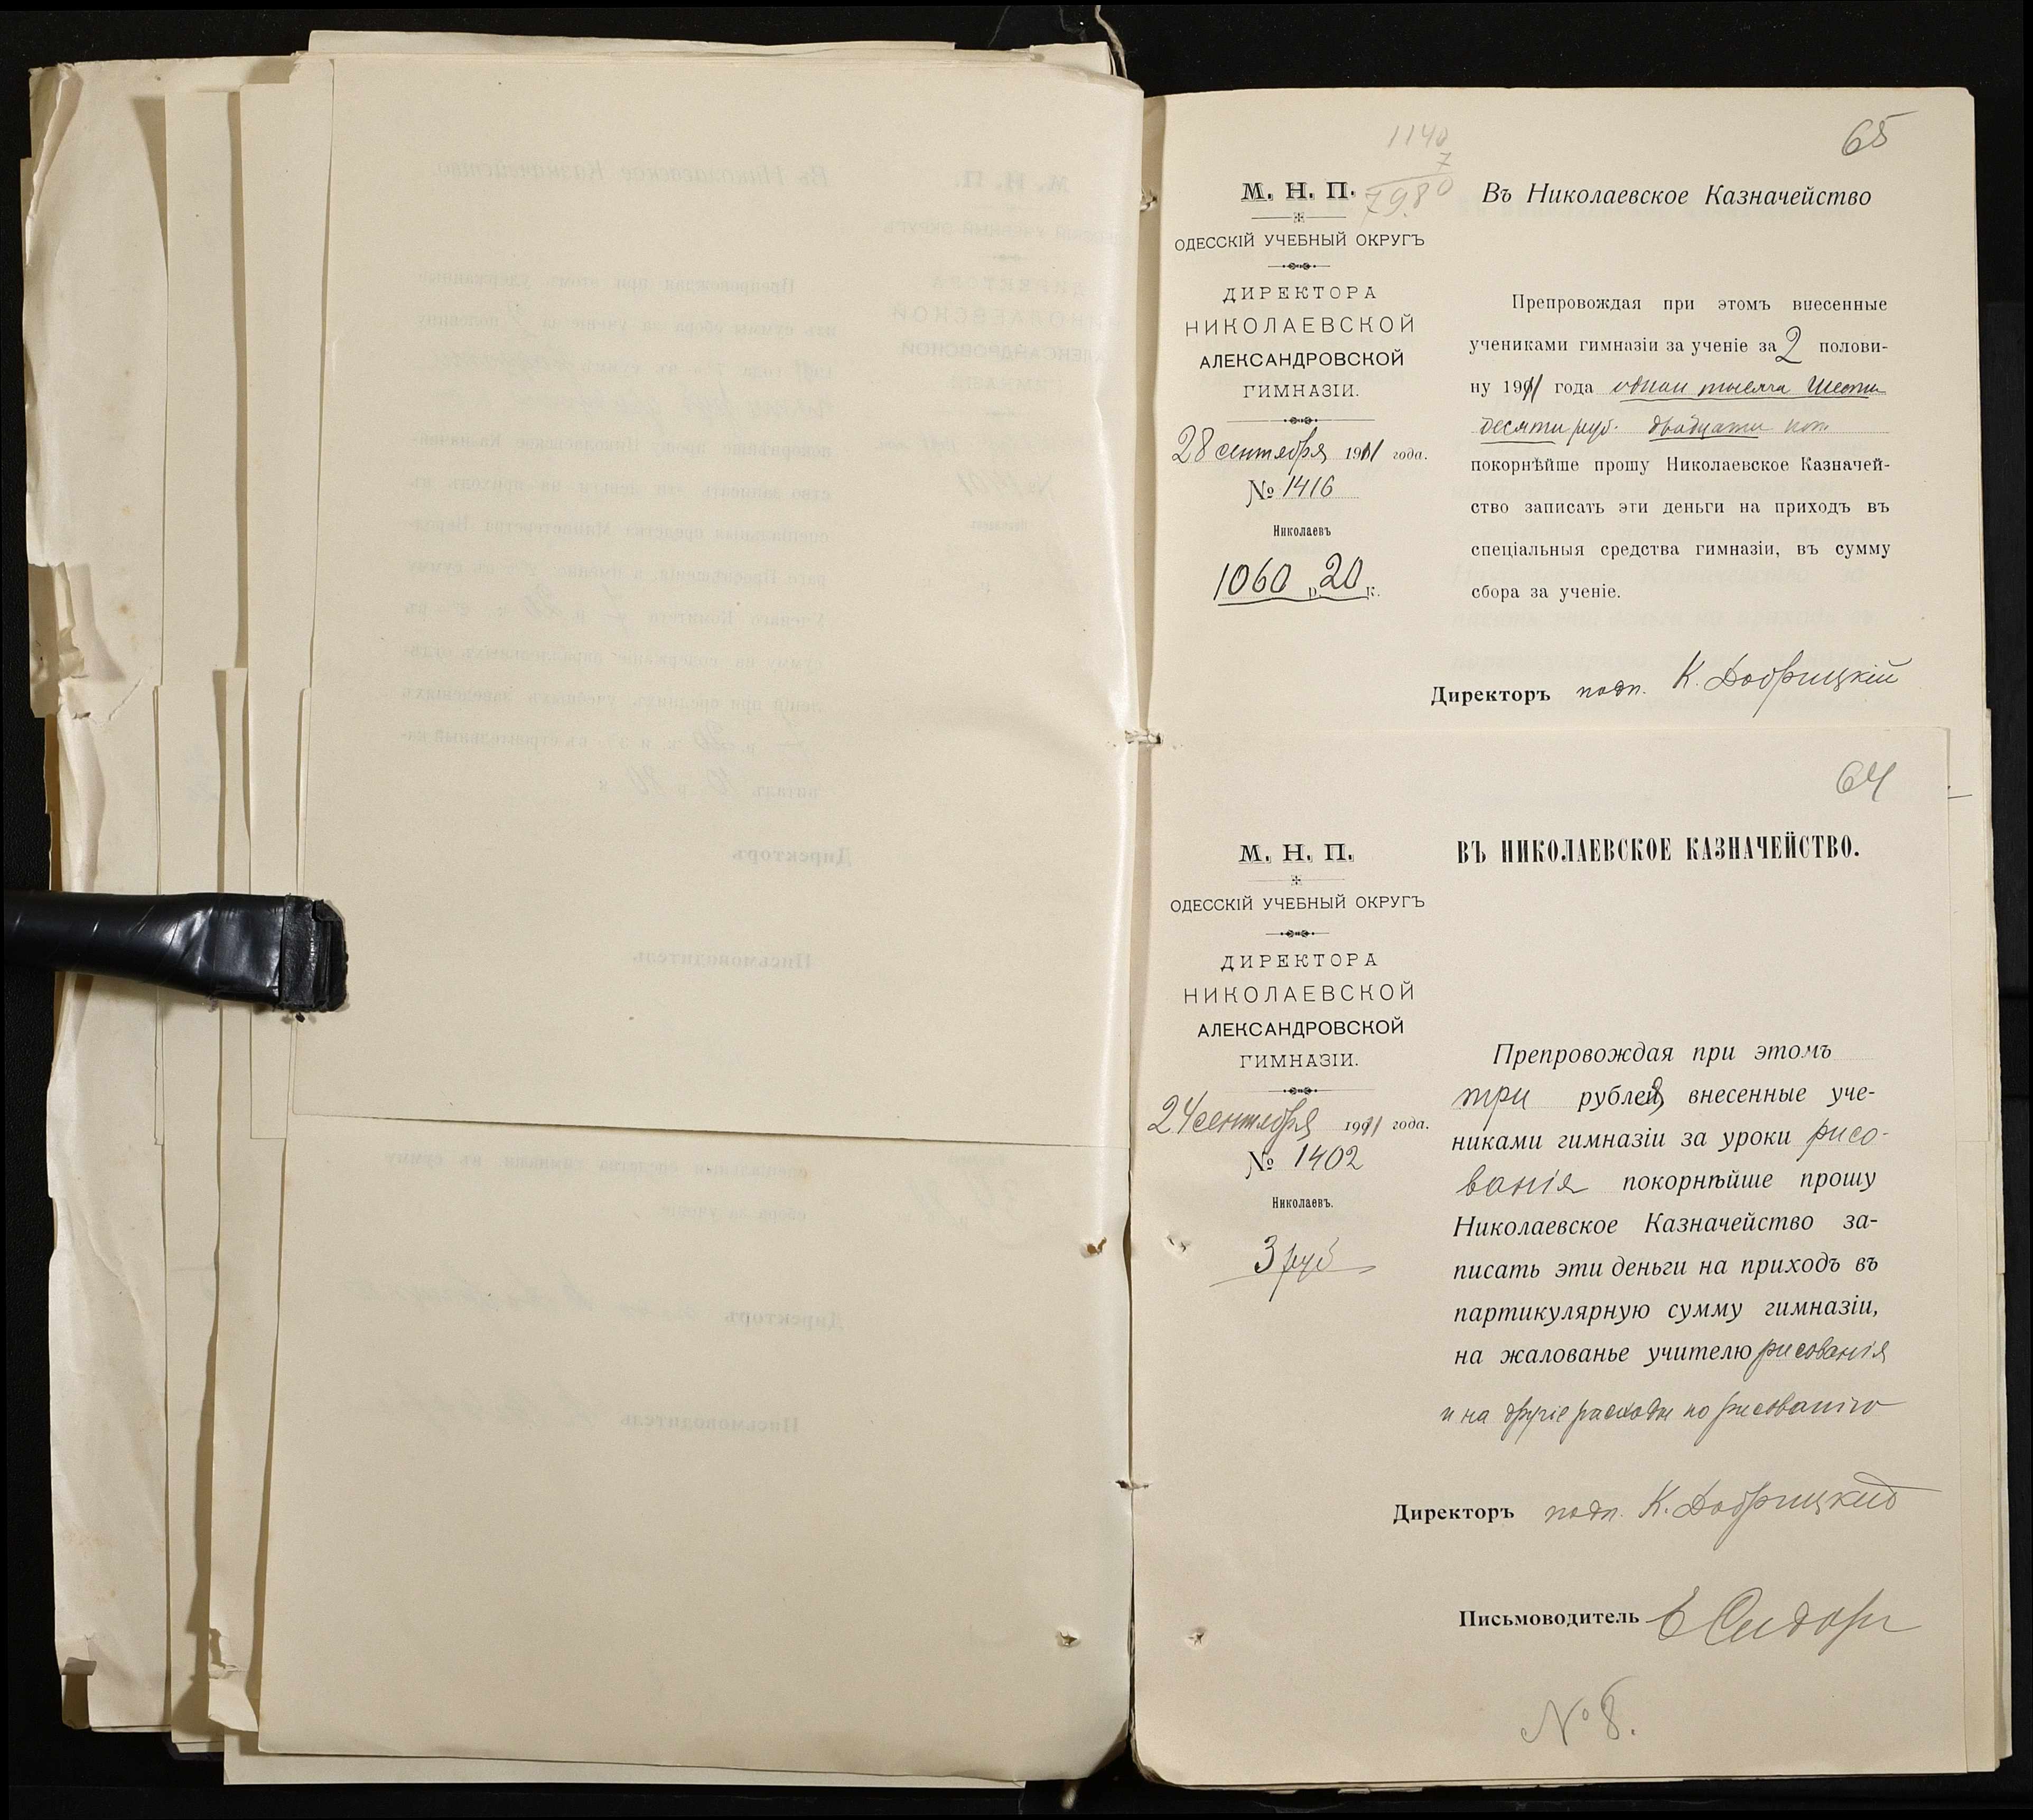 65
1140
7
79.80
М. Н. П.
ОДЕССКІЙ УЧЕБНЫЙ ОКРУГЪ
ДИРЕКТОРА
НИКОЛАЕВСКОЙ
АЛЕКСАНДРОВСКОЙ
ГИМНАЗІИ.
28 сентября 1911 года.
№ 1416
Николаевъ
1060 р. 20 к.
Въ Николаевское Казначейство
Препровождая при этомъ внесенные
учениками гимназіи за ученіе за 2 полови-
ну 1911 года одна тысяча шесть
десятъ руб. двадцать коп
покорнѣйше прошу Николаевское Казначей-
ство записать эти деньги на приходъ въ
спеціальныя средства гимназіи, въ сумму
сбора за ученіе.
Директоръ подп. К. Добрицкій
64
М. Н. П.
ОДЕССКІЙ УЧЕБНЫЙ ОКРУГЪ
ДИРЕКТОРА
НИКОЛАЕВСКОЙ
АЛЕКСАНДРОВСКОЙ
ГИМНАЗІИ.
24 сентября 1911 года.
№ 1402
Николаевъ.
3 руб
ВЪ НИКОЛАЕВСКОЕ КАЗНАЧЕЙСТВО.
Препровождая при этомъ
три рубля, внесенные уче-
никами гимназіи за уроки рисо-
ванія покорнѣйше прошу
Николаевское Казначейство за-
писать эти деньги на приходъ въ
партикулярную сумму гимназіи,
на жалованье учителю рисованія
и на другіе расходы по рисованію
Директоръ подп. К. Добрицкій
Письмоводитель
№ 8.